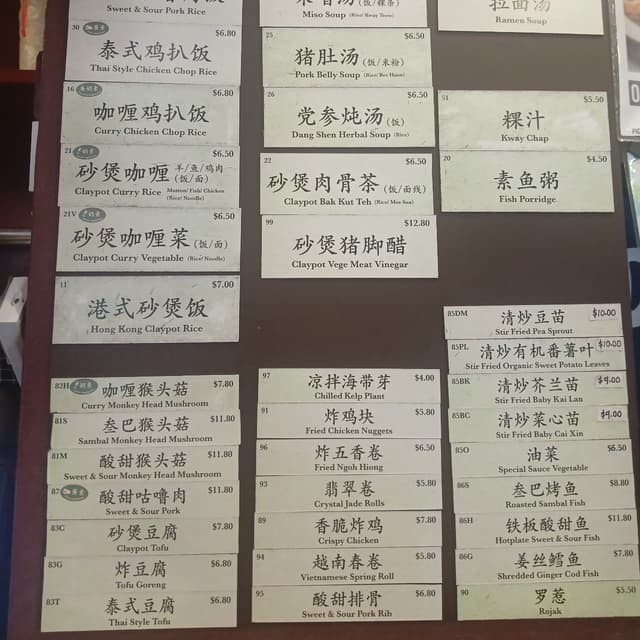 Sweet & Sour Pork Rice
30
$6.80
泰式鸡扒饭
Thai Style Chicken Chop Rice
16
$6.80
咖喱鸡扒饭
Curry Chicken Chop Rice
21
$6.50
砂煲咖喱 羊/鱼/鸡肉 (饭/面)
Claypot Curry Rice Mutton/ Fish/ Chicken (Rice/ Noodle)
21V
$6.50
砂煲咖喱菜 (饭/面)
Claypot Curry Vegetable (Rice/ Noodle)
11
$7.00
港式砂煲饭
Hong Kong Claypot Rice
82H
咖喱猴头菇
$7.80
Curry Monkey Head Mushroom
81S
叁巴猴头菇
$11.80
Sambal Monkey Head Mushroom
81M
酸甜猴头菇
$11.80
Sweet & Sour Monkey Head Mushroom
87
酸甜咕噜肉
$11.80
Sweet & Sour Pork
83C
砂煲豆腐
$7.80
Claypot Tofu
83G
炸豆腐
$6.80
Tofu Goreng
83T
泰式豆腐
$6.80
Thai Style Tofu
Miso Soup (Rice/ Kway Teow)
25
$6.50
猪肚汤 (饭/米粉)
Pork Belly Soup (Rice/ Bee Hoon)
26
$6.50
党参炖汤 (饭)
Dang Shen Herbal Soup (Rice)
22
$6.50
砂煲肉骨茶 (饭/面线)
Claypot Bak Kut Teh (Rice/ Mee Sua)
99
$12.80
砂煲猪脚醋
Claypot Vege Meat Vinegar
97
凉拌海带芽
$4.00
Chilled Kelp Plant
91
炸鸡块
$5.80
Fried Chicken Nuggets
96
炸五香卷
$6.50
Fried Ngoh Hiong
93
翡翠卷
$5.80
Crystal Jade Rolls
89
香脆炸鸡
$7.80
Crispy Chicken
94
越南春卷
$5.80
Vietnamese Spring Roll
95
酸甜排骨
$6.80
Sweet & Sour Pork Rib
拉面汤
Ramen Soup
51
$5.50
粿汁
Kway Chap
20
$4.50
素鱼粥
Fish Porridge
85DM
清炒豆苗
$10.00
Stir Fried Pea Sprout
85PL
清炒有机番薯叶
$10.00
Stir Fried Organic Sweet Potato Leaves
85BK
清炒芥兰苗
$9.00
Stir Fried Baby Kai Lan
85BC
清炒菜心苗
$9.00
Stir Fried Baby Cai Xin
85O
油菜
$6.50
Special Sauce Vegetable
86S
叁巴烤鱼
$8.80
Roasted Sambal Fish
86H
铁板酸甜鱼
$11.80
Hotplate Sweet & Sour Fish
86G
姜丝鳕鱼
$7.80
Shredded Ginger Cod Fish
90
罗惹
$5.50
Rojak